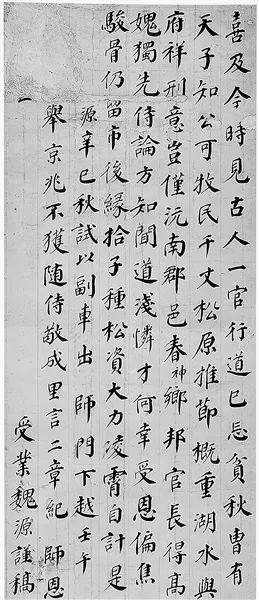 喜及今時見古人一官行道已忘貧秋曹有
天子知公可牧民千丈松原推節概重湖水與
府祥刑意豈僅沅南郡邑春神鄉邦官長得高
媿獨先侍論方知聞道淺憐才何幸受恩偏焦
駿骨仍留市後緣拾子種松資大力淩霄自計是
源辛巳秋試以副車出 師門下越壬午
舉京兆不獲隨侍敬成里言二章紀 師恩
一 受業魏源謹稿